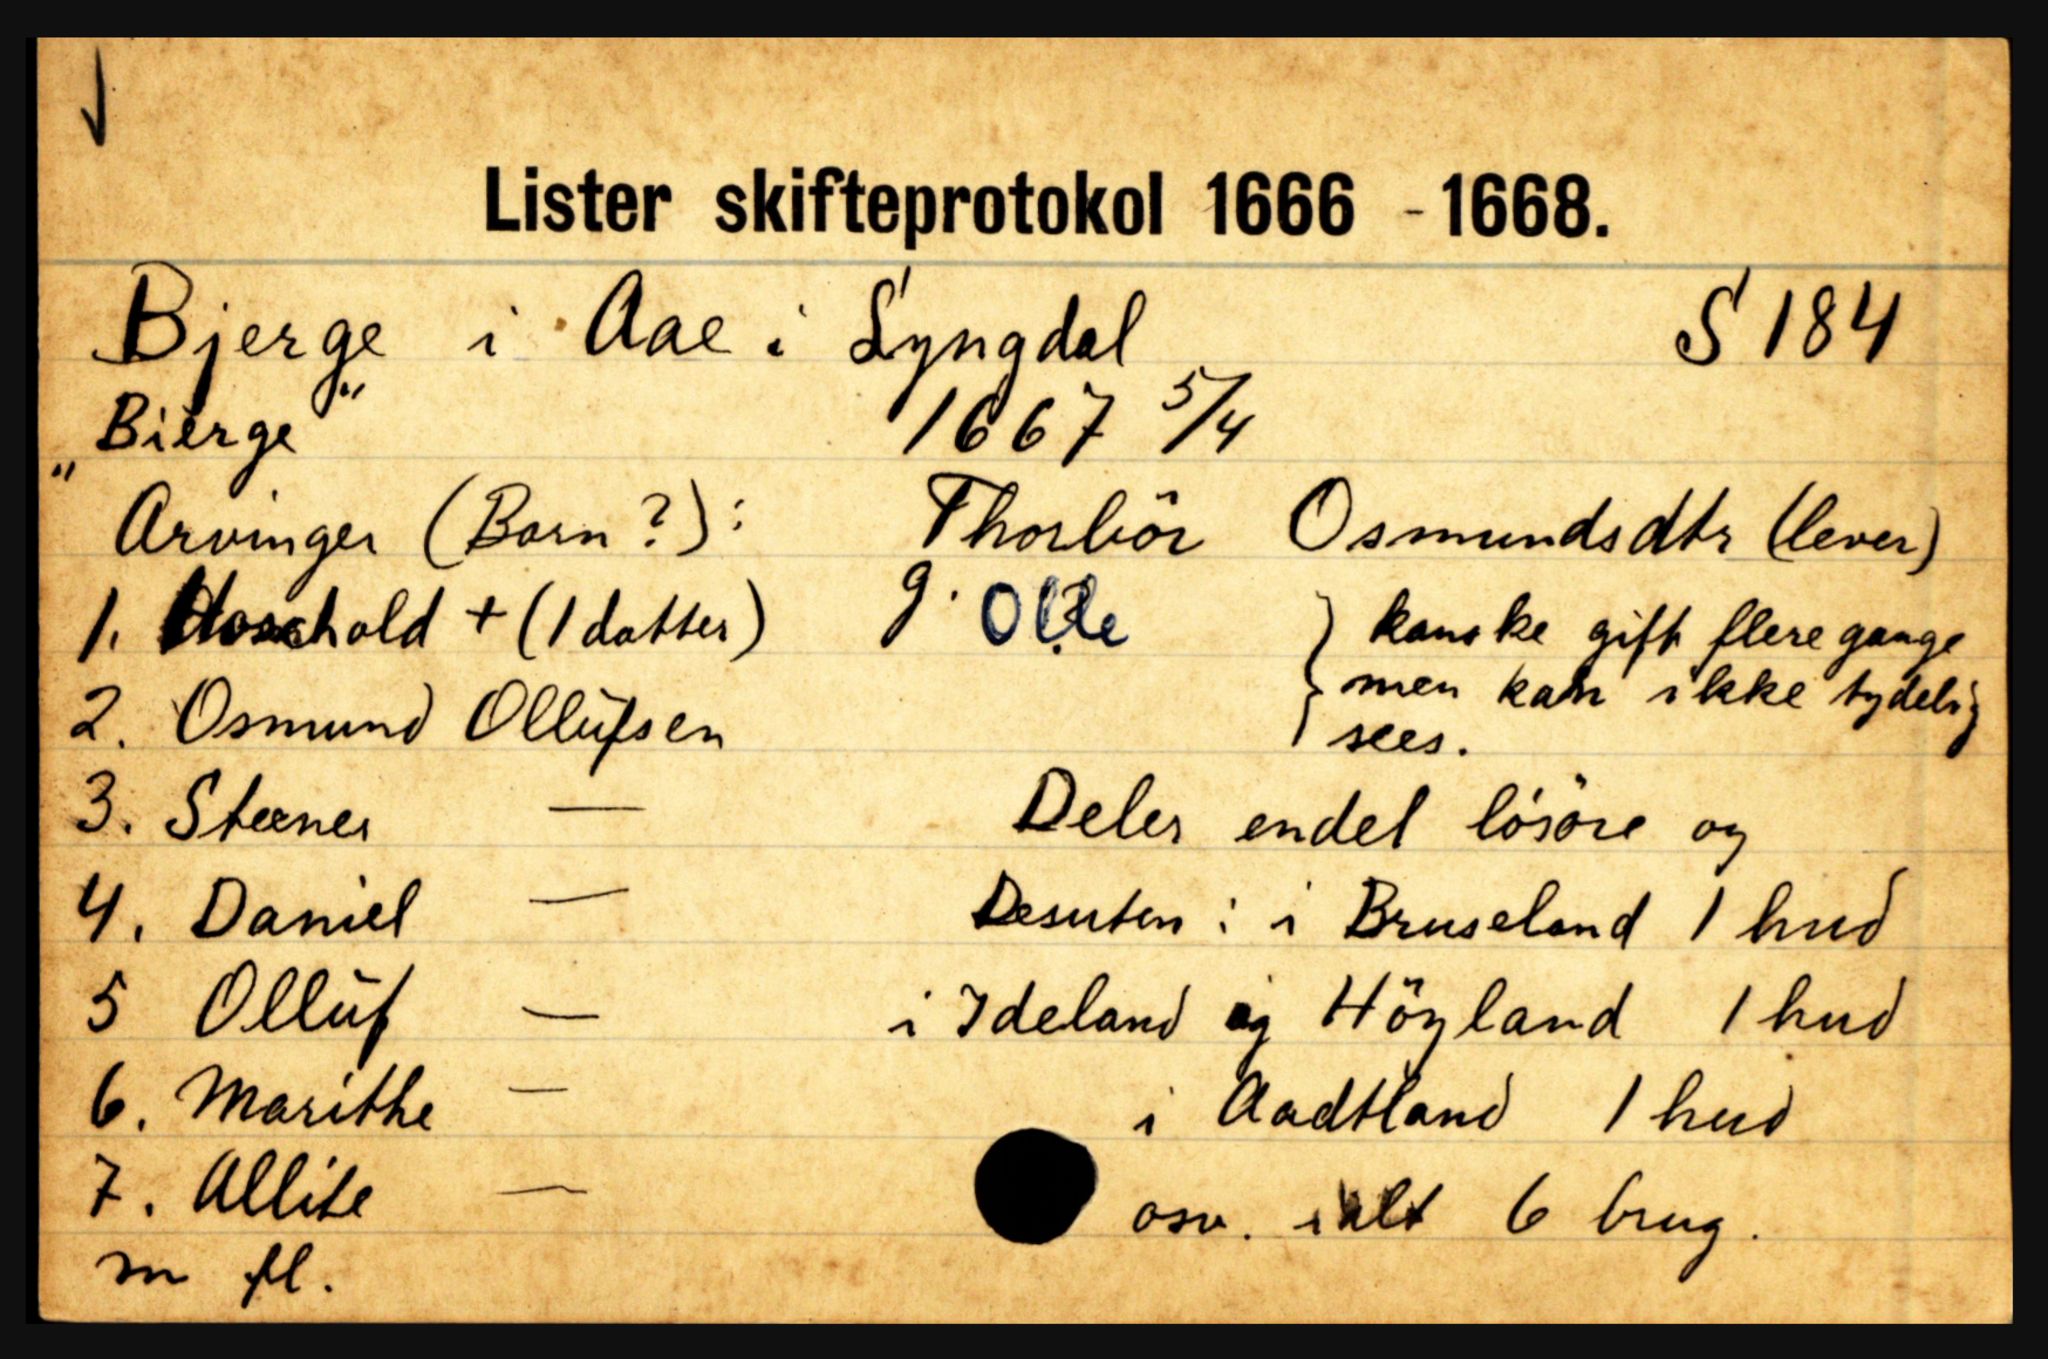 Lister skifteprotokol 1666 - 1668.
Bjerge i Aae i Lyngdal S 184
"Bierge" 1667 5/4
Arvinger (Barn?): Thorbör Osmundsdtr (lever)
1. hold + (1 datter) g. Olle } kanske gift flere gange
2. Osmund Ollŭfsen men kan ikke tydelig
sees.
3. Steener — Deler endel lösöre og
4. Daniel — Desuten : i Bruseland 1 hud
5 Ollŭf — i Ideland og Höyland 1 hud
6. Marithe — i Aadtland 1 hud
7. Allite — osv. ialt 6 brug.
m fl.